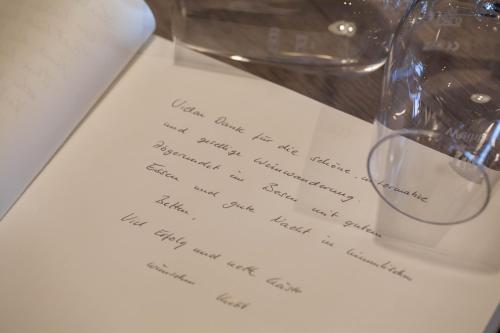 Vielen Dank für die schöne, informative
und gesellige Weinwanderung.
Abgerundet im Besen mit gutem
Essen und gute Nacht in himmlischen
Betten!
Viel Erfolg und nette Gäste
wünschen